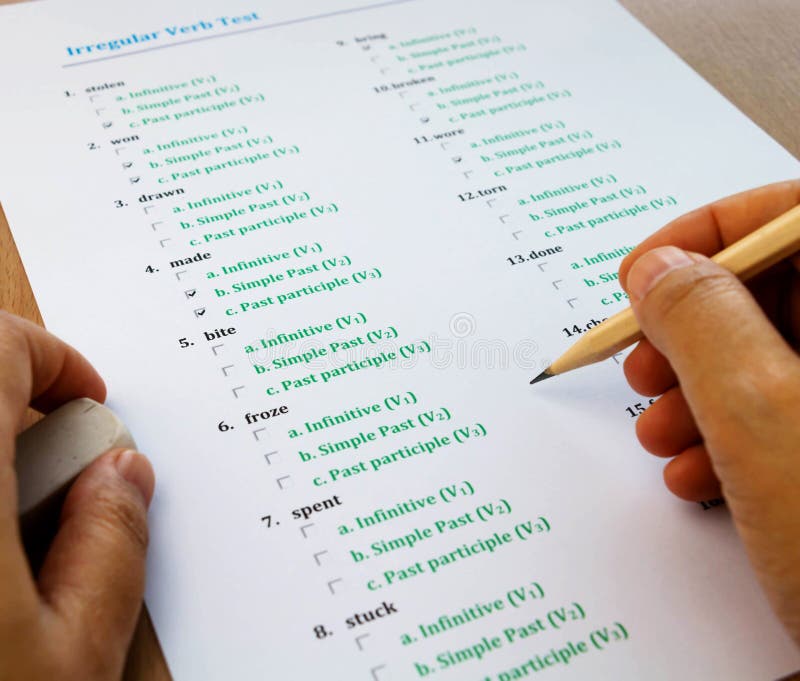 Irregular Verb Test
1. stolen
a. Infinitive (V1)
b. Simple Past (V2)
c. Past participle (V3)
2. won
a. Infinitive (V1)
b. Simple Past (V2)
c. Past participle (V3)
3. drawn
a. Infinitive (V1)
b. Simple Past (V2)
c. Past participle (V3)
4. made
a. Infinitive (V1)
b. Simple Past (V2)
c. Past participle (V3)
5. bite
a. Infinitive (V1)
b. Simple Past (V2)
c. Past participle (V3)
6. froze
a. Infinitive (V1)
b. Simple Past (V2)
c. Past participle (V3)
7. spent
a. Infinitive (V1)
b. Simple Past (V2)
c. Past participle (V3)
8. stuck
a. Infinitive (V1)
b. Simple Past (V2)
c. Past participle (V3)
9. bring
a. Infinitive (V1)
b. Simple Past (V2)
c. Past participle (V3)
10.broken
a. Infinitive (V1)
b. Simple Past (V2)
c. Past participle (V3)
11.wore
a. Infinitive (V1)
b. Simple Past (V2)
c. Past participle (V3)
12.torn
a. Infinitive (V1)
b. Simple Past (V2)
c. Past participle (V3)
13.done
a. Infinitive
b. Simple
c.
14.
15.